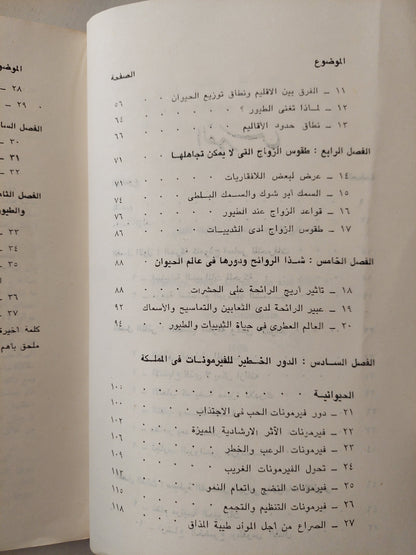 الموضوع الصفحة
١١ - الفرق بين الاقليم ونطاق توزيع الحيوان . . ٥٦
١٢ - لماذا تغنى الطيور ؟ . . . . ٦٤
١٣ - نطاق حدود الأقاليم . . . . ٦٦
الفصل الرابع : طقوس الزواج التى لا يمكن تجاهلها . ٧١
١٤ - عرض لبعض اللافقاريات . . . ٧١
١٥ - السمك أبو شوك والسمك البلطى . . . ٧٤
١٦ - قواعد الزواج عند الطيور . . . ٧٦
١٧ - طقوس الزواج لدى الثدييات . . . ٨٦
الفصل الخامس : شذا الروائح ودورها فى عالم الحيوان . ٨٨
١٨ - تأثير أريج الرائحة على الحشرات . . . ٨٨
١٩ - عبير الرائحة لدى الثعابين والتماسيح والأسماك ٩٢
٢٠ - العالم العطرى فى حياة الثدييات والطيور . . ٩٤
الفصل السادس : الدور الخطير للفيرمونات فى المملكة
الحيوانية . . . . . . ١٠٠
٢١ - دور فيرمونات الحب فى الاجتذاب . . ١٠٠
٢٢ - فيرمونات الأثر الارشادية المميزة . . . ١٠٦
٢٣ - فيرمونات الرعب والخطر . . . ١٠٩
٢٤ - تحول الفيرمونات الغريب . . . ١١٣
٢٥ - فيرمونات النضج واتمام النمو . . . ١١٥
٢٦ - فيرمونات التنظيم والتجمع . . . ١١٨
٢٧ - الصراع من أجل المواد طيبة المذاق . .
٢٨ -
٢٩ -
الفصل
٣٠ -
٣١ -
٣٢ -
الفصل
والطيور
٣٣ -
٣٤ -
٣٦ -
٣٧ -
كلمة أخيرة
ملحق بأهم